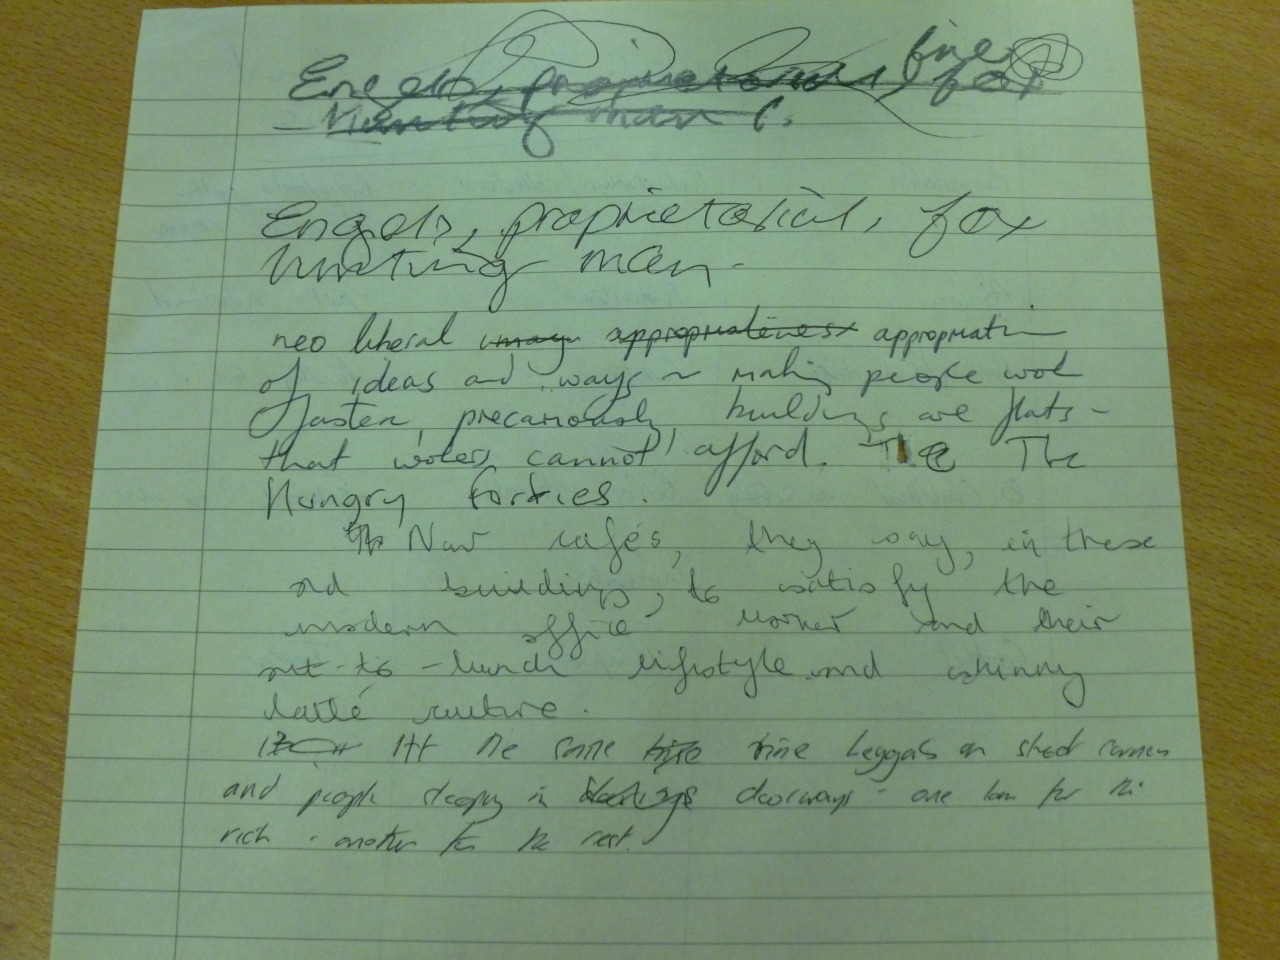 Engels, proprietorial, fine fox
- Hunting man C.
Engels, proprietorial, fox
hunting man -
neo liberal appropriateness appropriation
of ideas and ways ~ making people work
faster, precariously, buildings are flats -
that workers cannot afford. The The
Hungry Forties.
New cafés, they say, in these
old buildings, to satisfy the
modern office worker and their
out-to-lunch lifestyle and skinny
latté culture.
At the same time time beggars on street corners
and people sleeping in doorways - one law for the
rich - another for the rest.